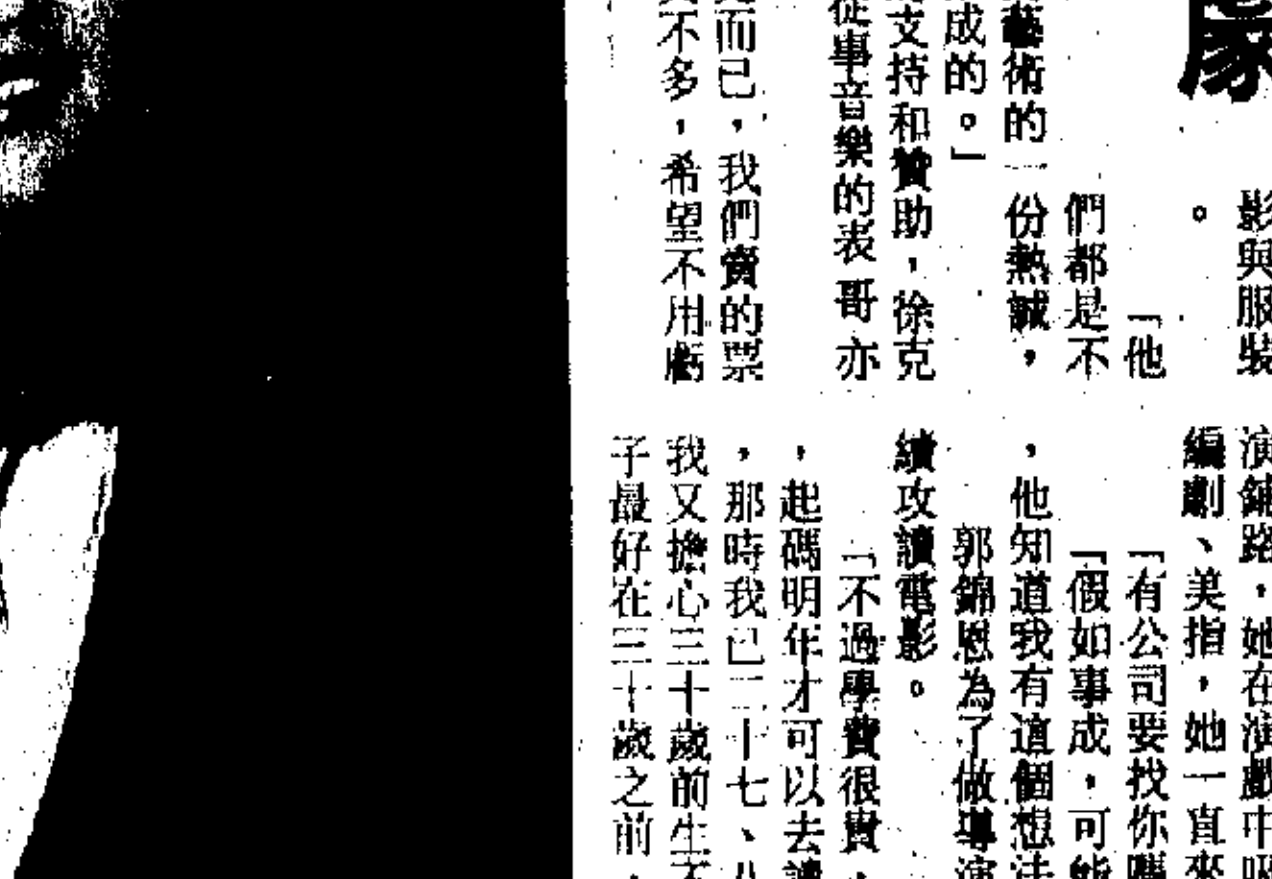 影與服裝
。
「他
們都是不
藝術的一份熱誠，
成的。」
支持和贊助，徐克
從事音樂的表哥亦
而已，我們賣的票
不多，希望不用虧
演鋪路，她在演戲中吸
編劇、美指，她一直來
「有公司要找你嗎
「假如事成，可能
，他知道我有這個想法
郭錦恩為了做導演
續攻讀電影。
「不過學費很貴，
，起碼明年才可以去讀
，那時我已二十七、八
我又擔心三十歲前生不
子最好在三十歲之前，